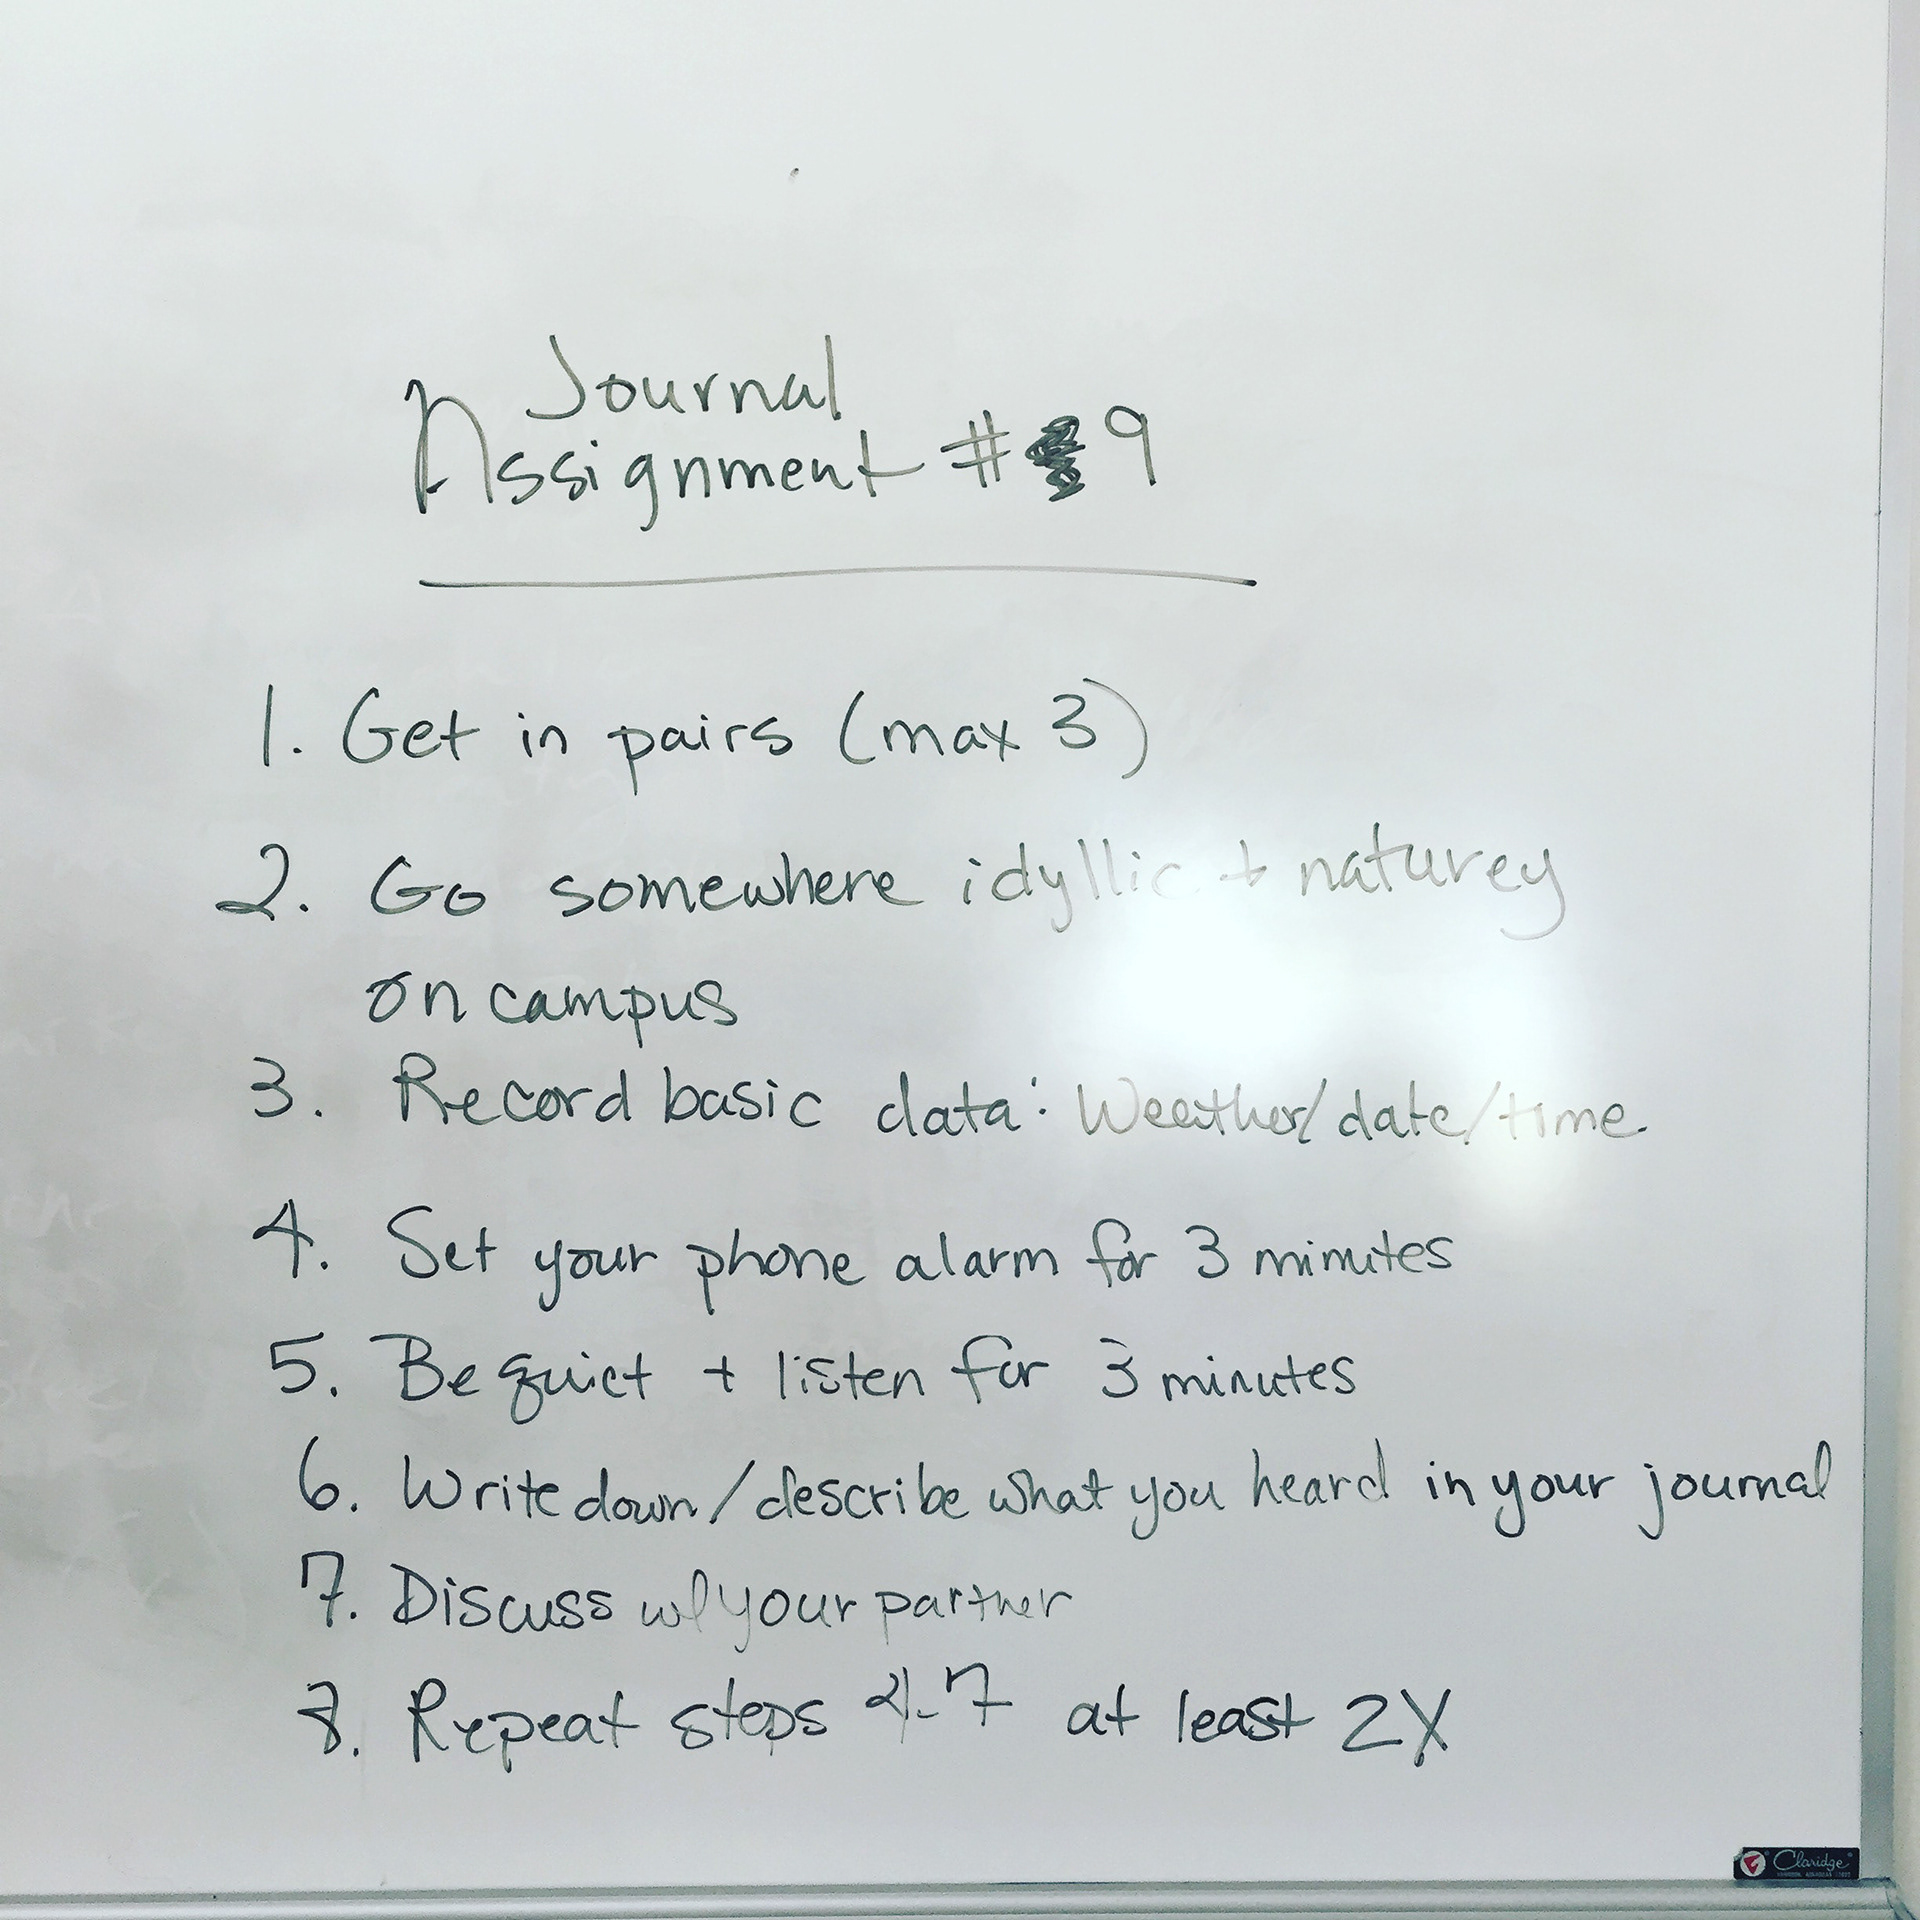 Journal
Assignment # 9
1. Get in pairs (max 3)
2. Go somewhere idyllic + naturey
on campus
3. Record basic data: Weather/date/time
4. Set your phone alarm for 3 minutes
5. Be quiet + listen for 3 minutes
6. Write down/describe what you heard in your journal
7. Discuss w/ your partner
8. Repeat steps 4-7 at least 2X
Claridge